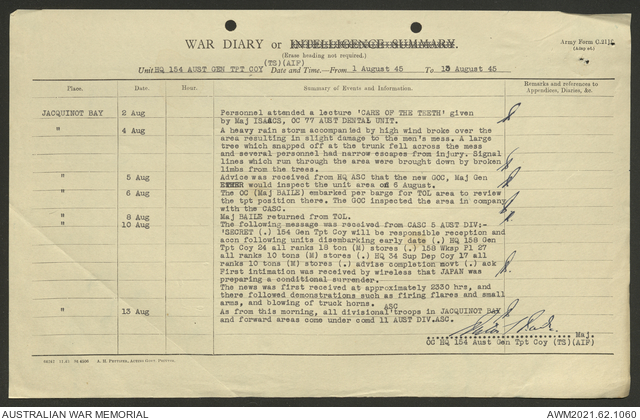 WAR DIARY or INTELLIGENCE SUMMARY.
Army Form C.2118
(Erase heading not required.)
(TS)(AIF)
Unit HQ 154 AUST GEN TPT COY Date and Time.—From 1 August 45 To 13 August 45
Place. Date. Hour. Summary of Events and Information. Remarks and references to Appendices, Diaries, &c.
JACQUINOT BAY 2 Aug Personnel attended a lecture 'CARE OF THE TEETH' given
by Maj ISAACS, OC 77 AUST DENTAL UNIT.
" 4 Aug A heavy rain storm accompanied by high wind broke over the
area resulting in slight damage to the men's mess. A large
tree which snapped off at the trunk fell across the mess
and several personnel had narrow escapes from injury. Signal
lines which run through the area were brought down by broken
limbs from the trees.
" 5 Aug Advice was received from HQ ASC that the new GOC, Maj Gen
would inspect the unit area on 6 August.
" 6 Aug The OC (Maj BAILE) embarked per barge for TOL area to review
the tpt position there. The GOC inspected the area in company
with the CASC.
" 8 Aug Maj BAILE returned from TOL.
" 10 Aug The following message was received from CASC 5 AUST DIV;-
'SECRET (.) 154 Gen Tpt Coy will be responsible reception and
accn following units disembarking early date (.) HQ 158 Gen
Tpt Coy 24 all ranks 18 ton (M) stores (.) 158 Wksp Pl 27
all ranks 10 tons (M) stores (.) HQ 34 Sup Dep Coy 17 all
ranks 10 tons (M) stores (.) advise completion movt (.) ack
First intimation was received by wireless that JAPAN was
preparing a conditional surrender.
The news was received at approximately 2330 hrs, and
there followed demonstrations such as firing flares and small
arms, and blowing of truck horns.
" 13 Aug As from this morning, all divisional ASC troops in JACQUINOT BAY
and forward areas come under comd 11 AUST DIV.ASC.
Maj.
OC HQ 154 Aust Gen Tpt Coy (TS)(AIF)
AUSTRALIAN WAR MEMORIAL AWM2021.62.1060